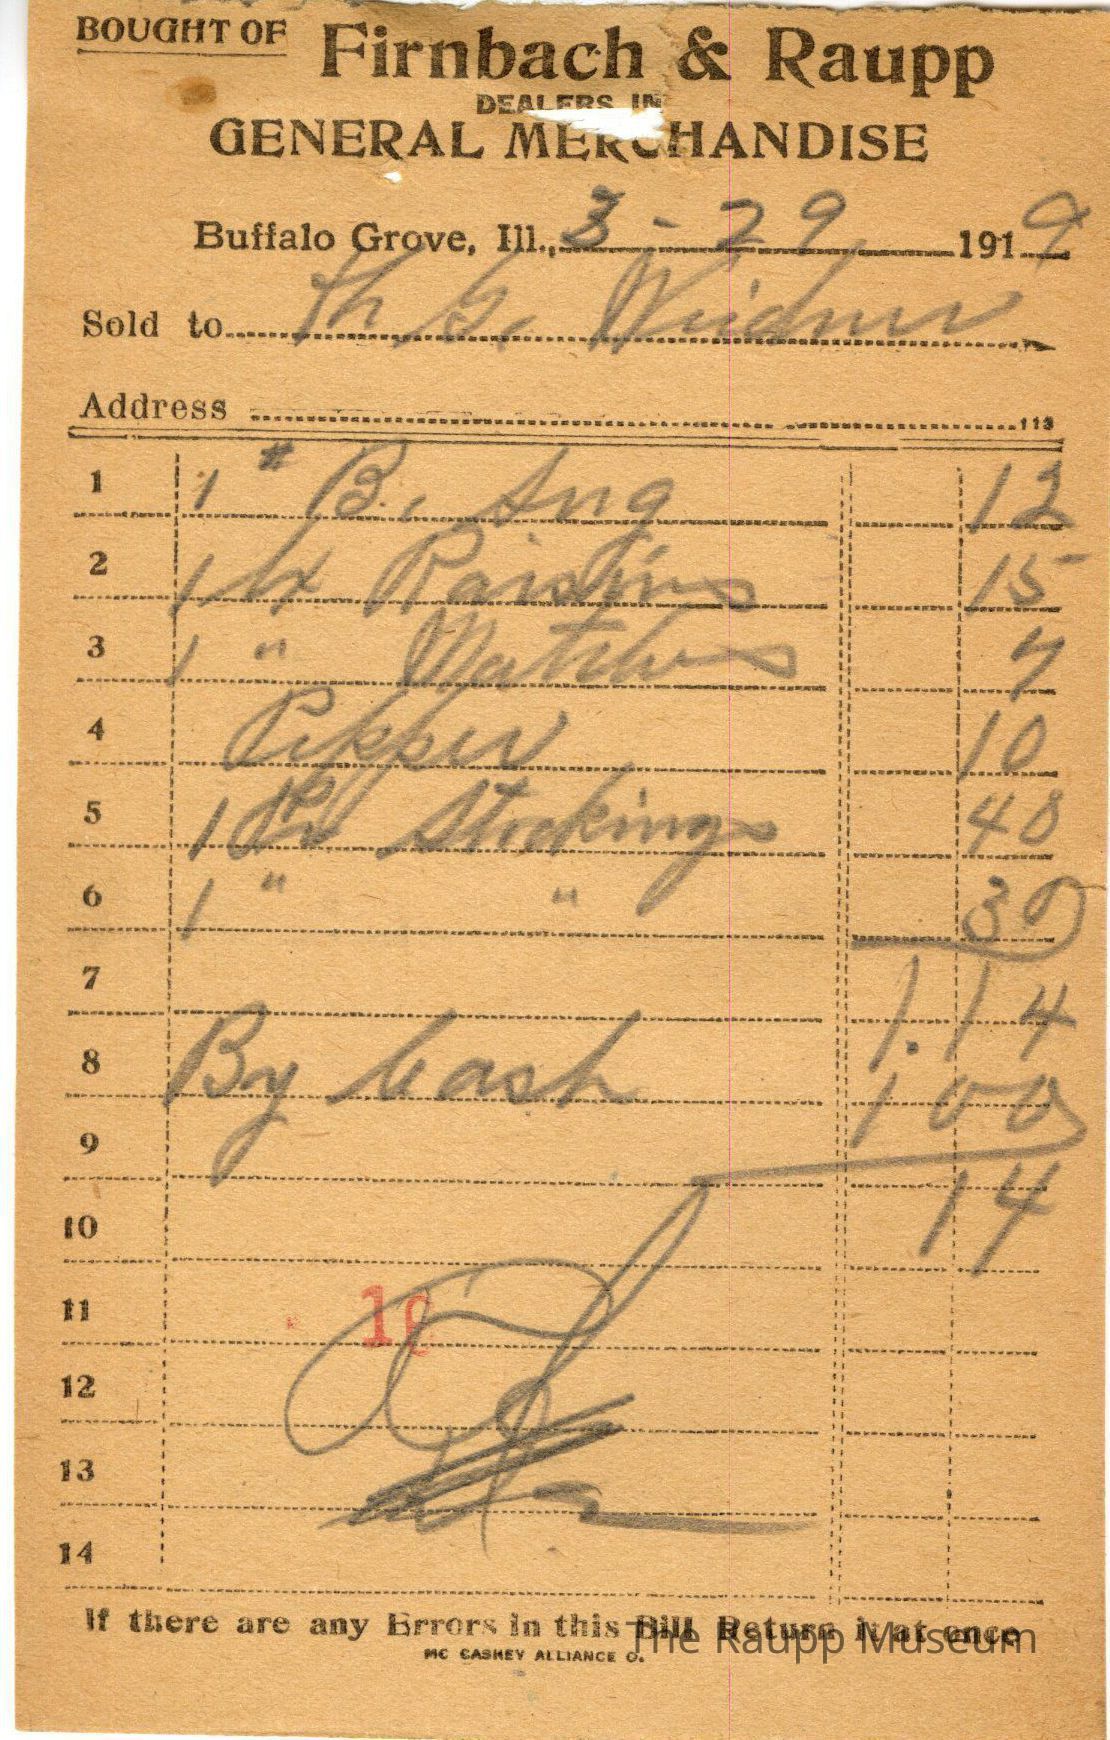 BOUGHT OF Firnbach & Raupp
DEALERS IN
GENERAL MERCHANDISE
Buffalo Grove, Ill., 3-29 1919
Sold to
Address
113
1 1 # B. Sug 12
2 1 Raisins 15
3 1 " Matches 7
4 Pepper 10
5 1 Pr Stockings 40
6 1 " " 30
7 1.14
8 By Cash 100
9
14
10
11 10
12
13
14
If there are any Errors in this Bill Return it at once
MC CASKEY ALLIANCE O.
The Raupp Museum